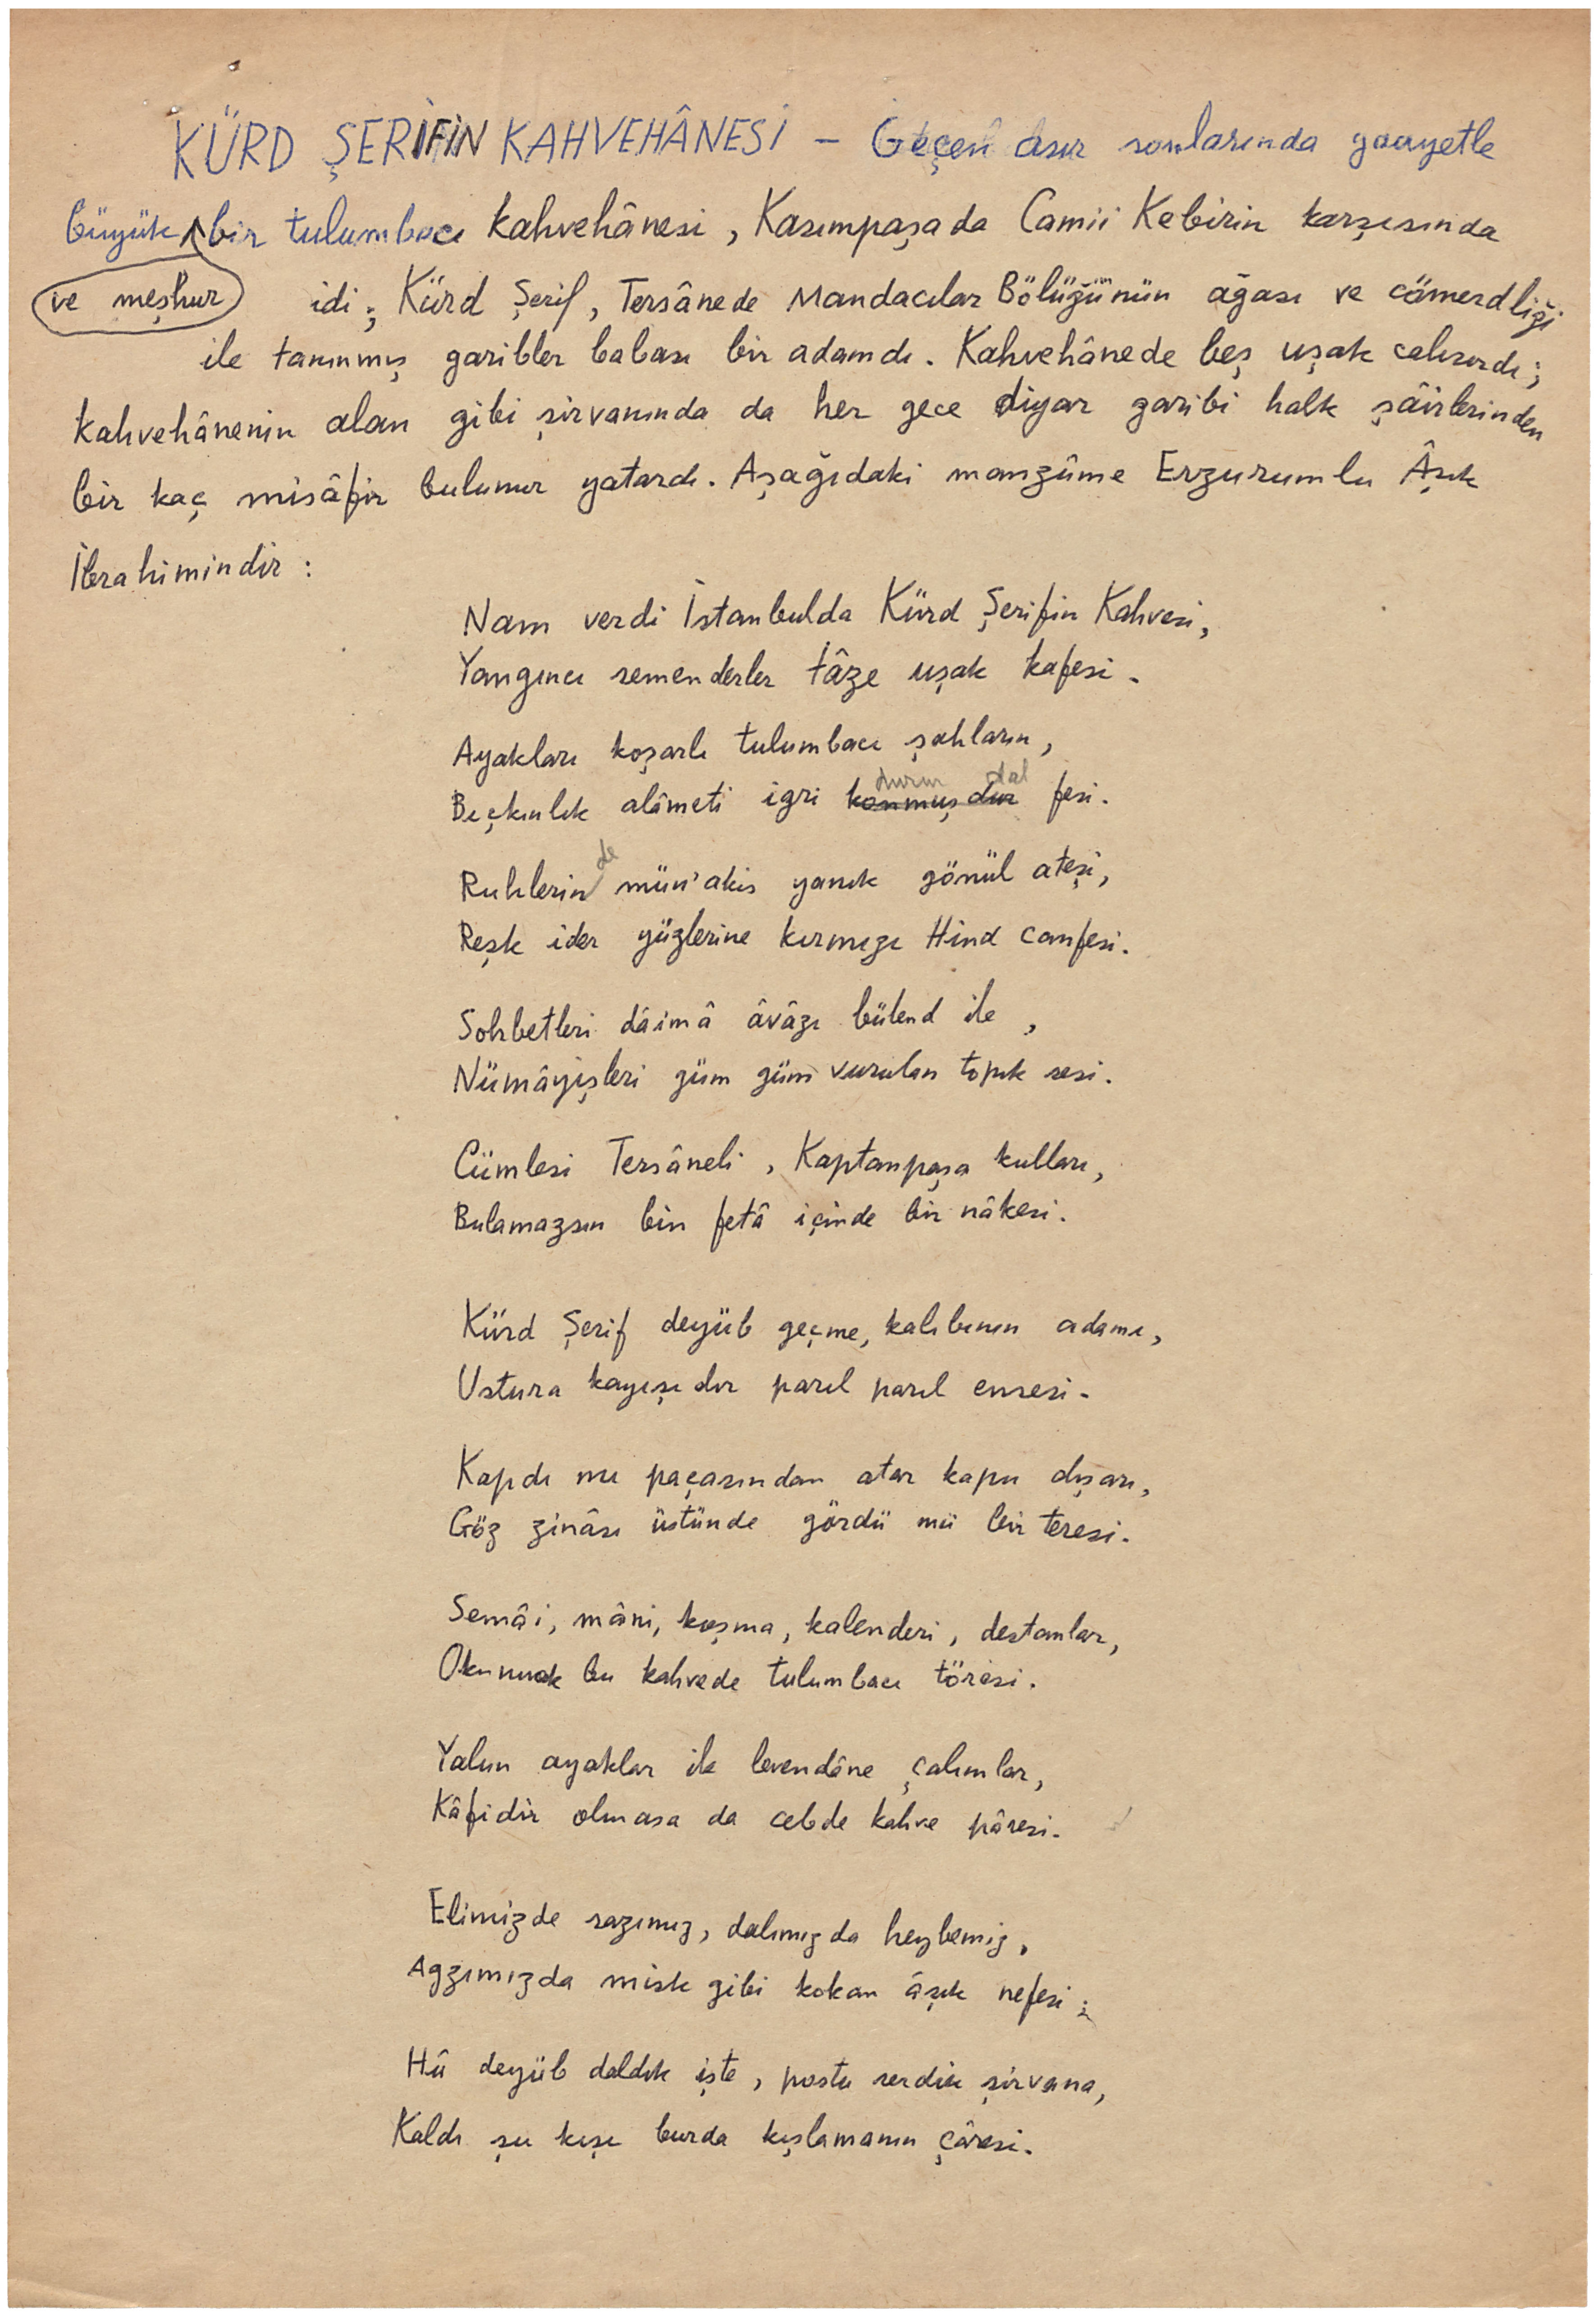 KÜRD ŞERİFİN KAHVEHÂNESİ – Geçen asır sonlarında gaayetle
büyük ve meşhur bir tulumbacı kahvehânesi, Kasımpaşada Camii Kebirin karşısında
idi; Kürd Şerif, Tersânede Mandacılar Bölüğünün ağası ve cömerdliği
ile tanınmış garibler babası bir adamdı. Kahvehânede beş uşak calışırdı;
kahvehânenin alan gibi şirvanında da her gece diyar garibi halk şâirlerinden
bir kaç misâfir bulunur yatardı. Aşağıdaki manzûme Erzurumlu Âşık
İbrahimindir :
Nam verdi İstanbulda Kürd Şerifin Kahvesi,
Yangıncı semenderler tâze uşak kafesi.
Ayakları koşarlı tulumbacı şahların,
Bıçkınlık alâmeti igri durur dal fesi.
Ruhlerinde mün'akis yanık gönül ateşi,
Reşk ider yüzlerine kırmızı Hind canfesi.
Sohbetleri dâimâ âvâzı bülend ile,
Nümâyişleri güm güm vurulan topuk sesi.
Cümlesi Tersâneli, Kaptanpaşa kulları,
Bulamazsın bin fetâ içinde bir nâkesi.
Kürd Şerif deyüb geçme, kalıbının adamı,
Ustura kayışıdır parıl parıl ensesi.
Kapdı mı paçasından atar kapu dışarı,
Göz zinâsı üstünde gördü mü bir teresi.
Semâi, mâni, koşma, kalenderi, destanlar,
Okumak bu kahvede tulumbacı töresi.
Yalın ayaklar ile levendâne çalımlar,
Kâfidir olmasa da cebde kahve pâresi.
Elimizde sazımız, dalımızda heybemiz,
Agzımızda misk gibi kokan âşık nefesi;
Hû deyüb daldık işte, postu serdik şirvana,
Kaldı şu kışı burda kışlamanın çâresi.